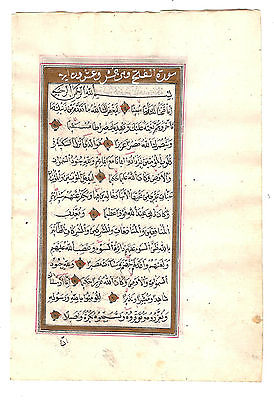 سورة الفتح وهي تسع وعشرون آية
بسم الله الرحمن الرحيم
إنا فتحنا لك فتحا مبينا ليغفر لك الله ما تقدم من ذنبك وما
تأخر ويتم نعمته عليك ويهديك صراطا مستقيما
وينصرك الله نصرا عزيزا هو الذي أنزل السكينة
في قلوب المؤمنين ليزدادوا إيمانا مع إيمانهم ولله جنود السموات
والأرض وكان الله عليما حكيما ليدخل المؤمنين والمؤمنات
جنات تجري من تحتها الأنهار خالدين فيها ويكفر عنهم سيئاتهم
وكان ذلك عند الله فوزا عظيما ويعذب
المنافقين والمنافقات والمشركين والمشركات الظانين
بالله ظن السوء عليهم دائرة السوء وغضب الله عليهم
ولعنهم وأعد لهم جهنم وساءت مصيرا ولله جنود
السموات والأرض وكان الله عزيزا حكيما إنا أرسلناك
شاهدا ومبشرا ونذيرا لتؤمنوا بالله ورسوله
وتعزروه وتوقروه وتسبحوه بكرة وأصيلا
إن